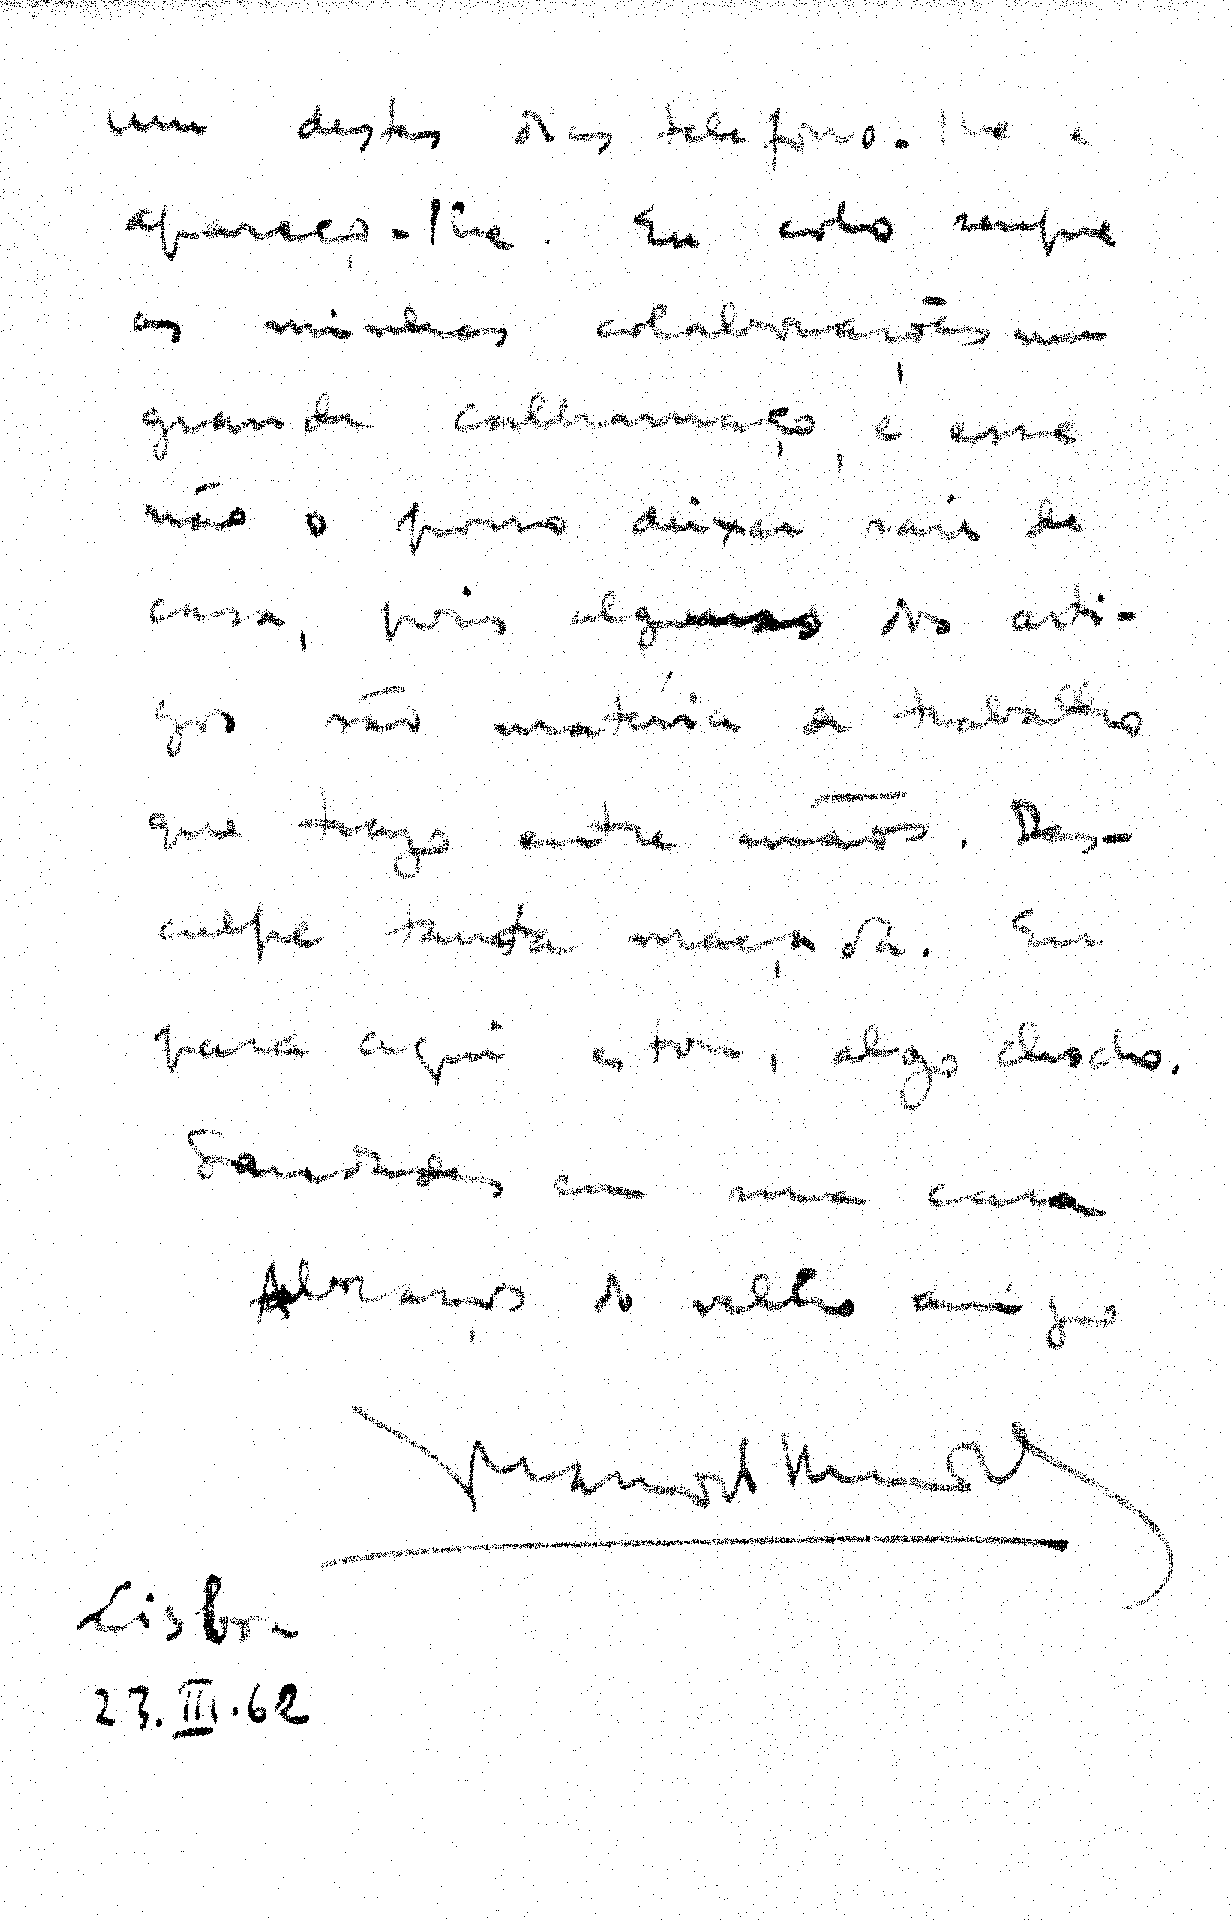 um destes dias telefono-lhe e
apareço-lhe. Eu colo sempre
as minhas colaborações num
grande calhamaço, e esse
não o posso deixar sair de
casa, pois algumas dos arti-
gos são matéria de trabalho
que trago entre mãos. Des-
culpe tanta maçada. Eu
para aqui estou, algo chocho.
Saudades em sua casa
Abraços do velho amigo
Manuel Mendes
Lisboa
23.III.62